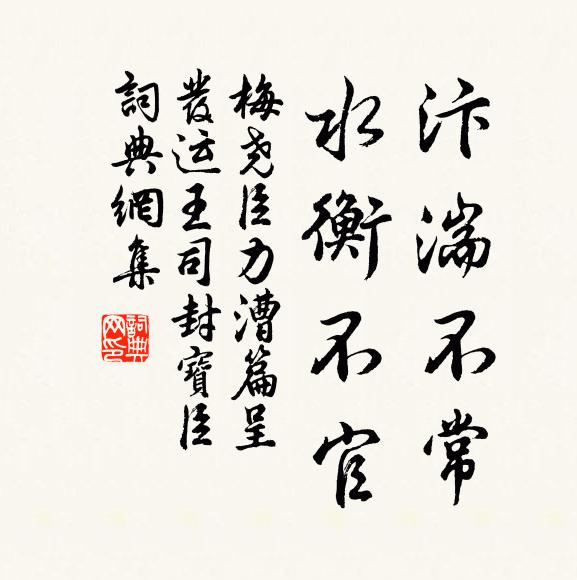 汴湍不常
水衡不官
梅尧臣力漕篇呈
發运王司封寶臣
詞典網集
詞典網印